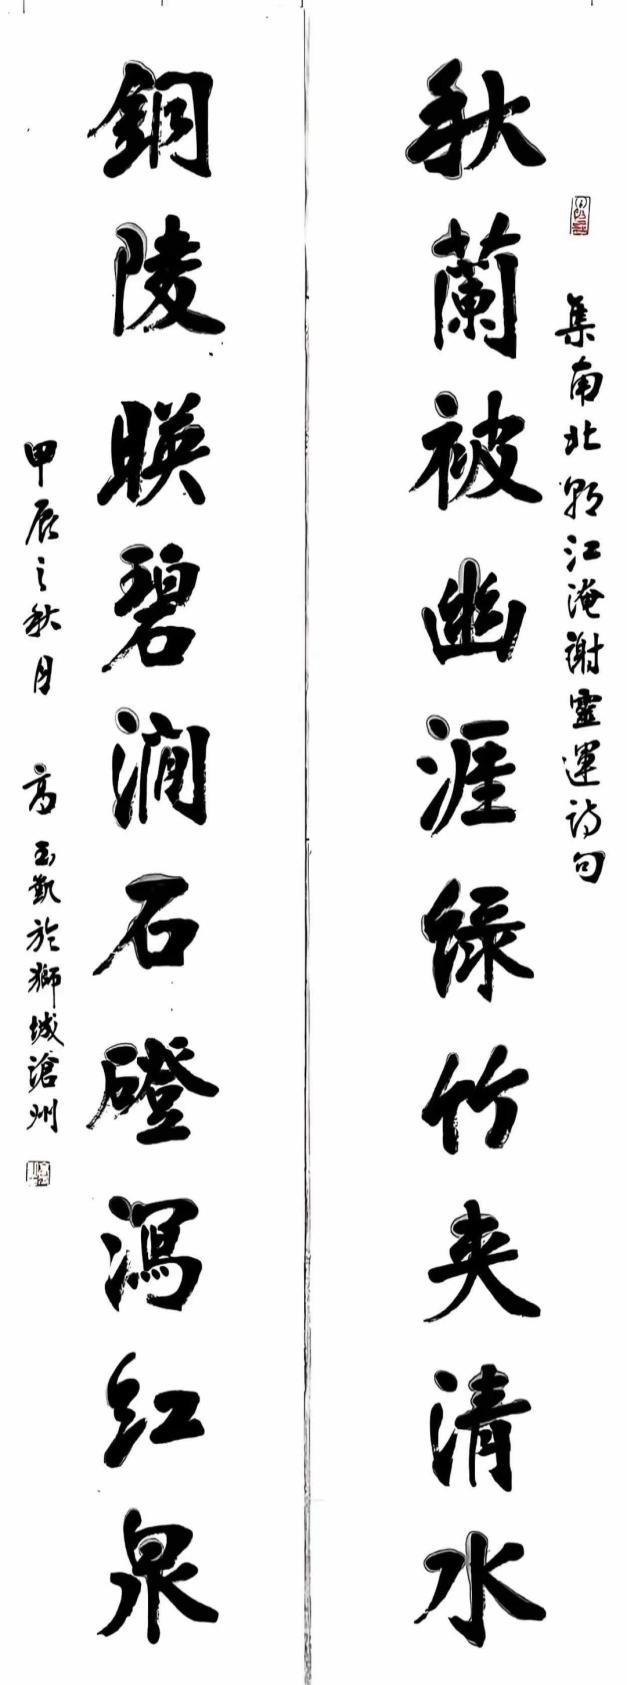 集南北朝江淹謝靈運詩句
秋蘭被幽涯綠竹夾清水
銅陵暎碧澗石磴瀉紅泉
甲辰之秋月 高玉凱於獅城滄州